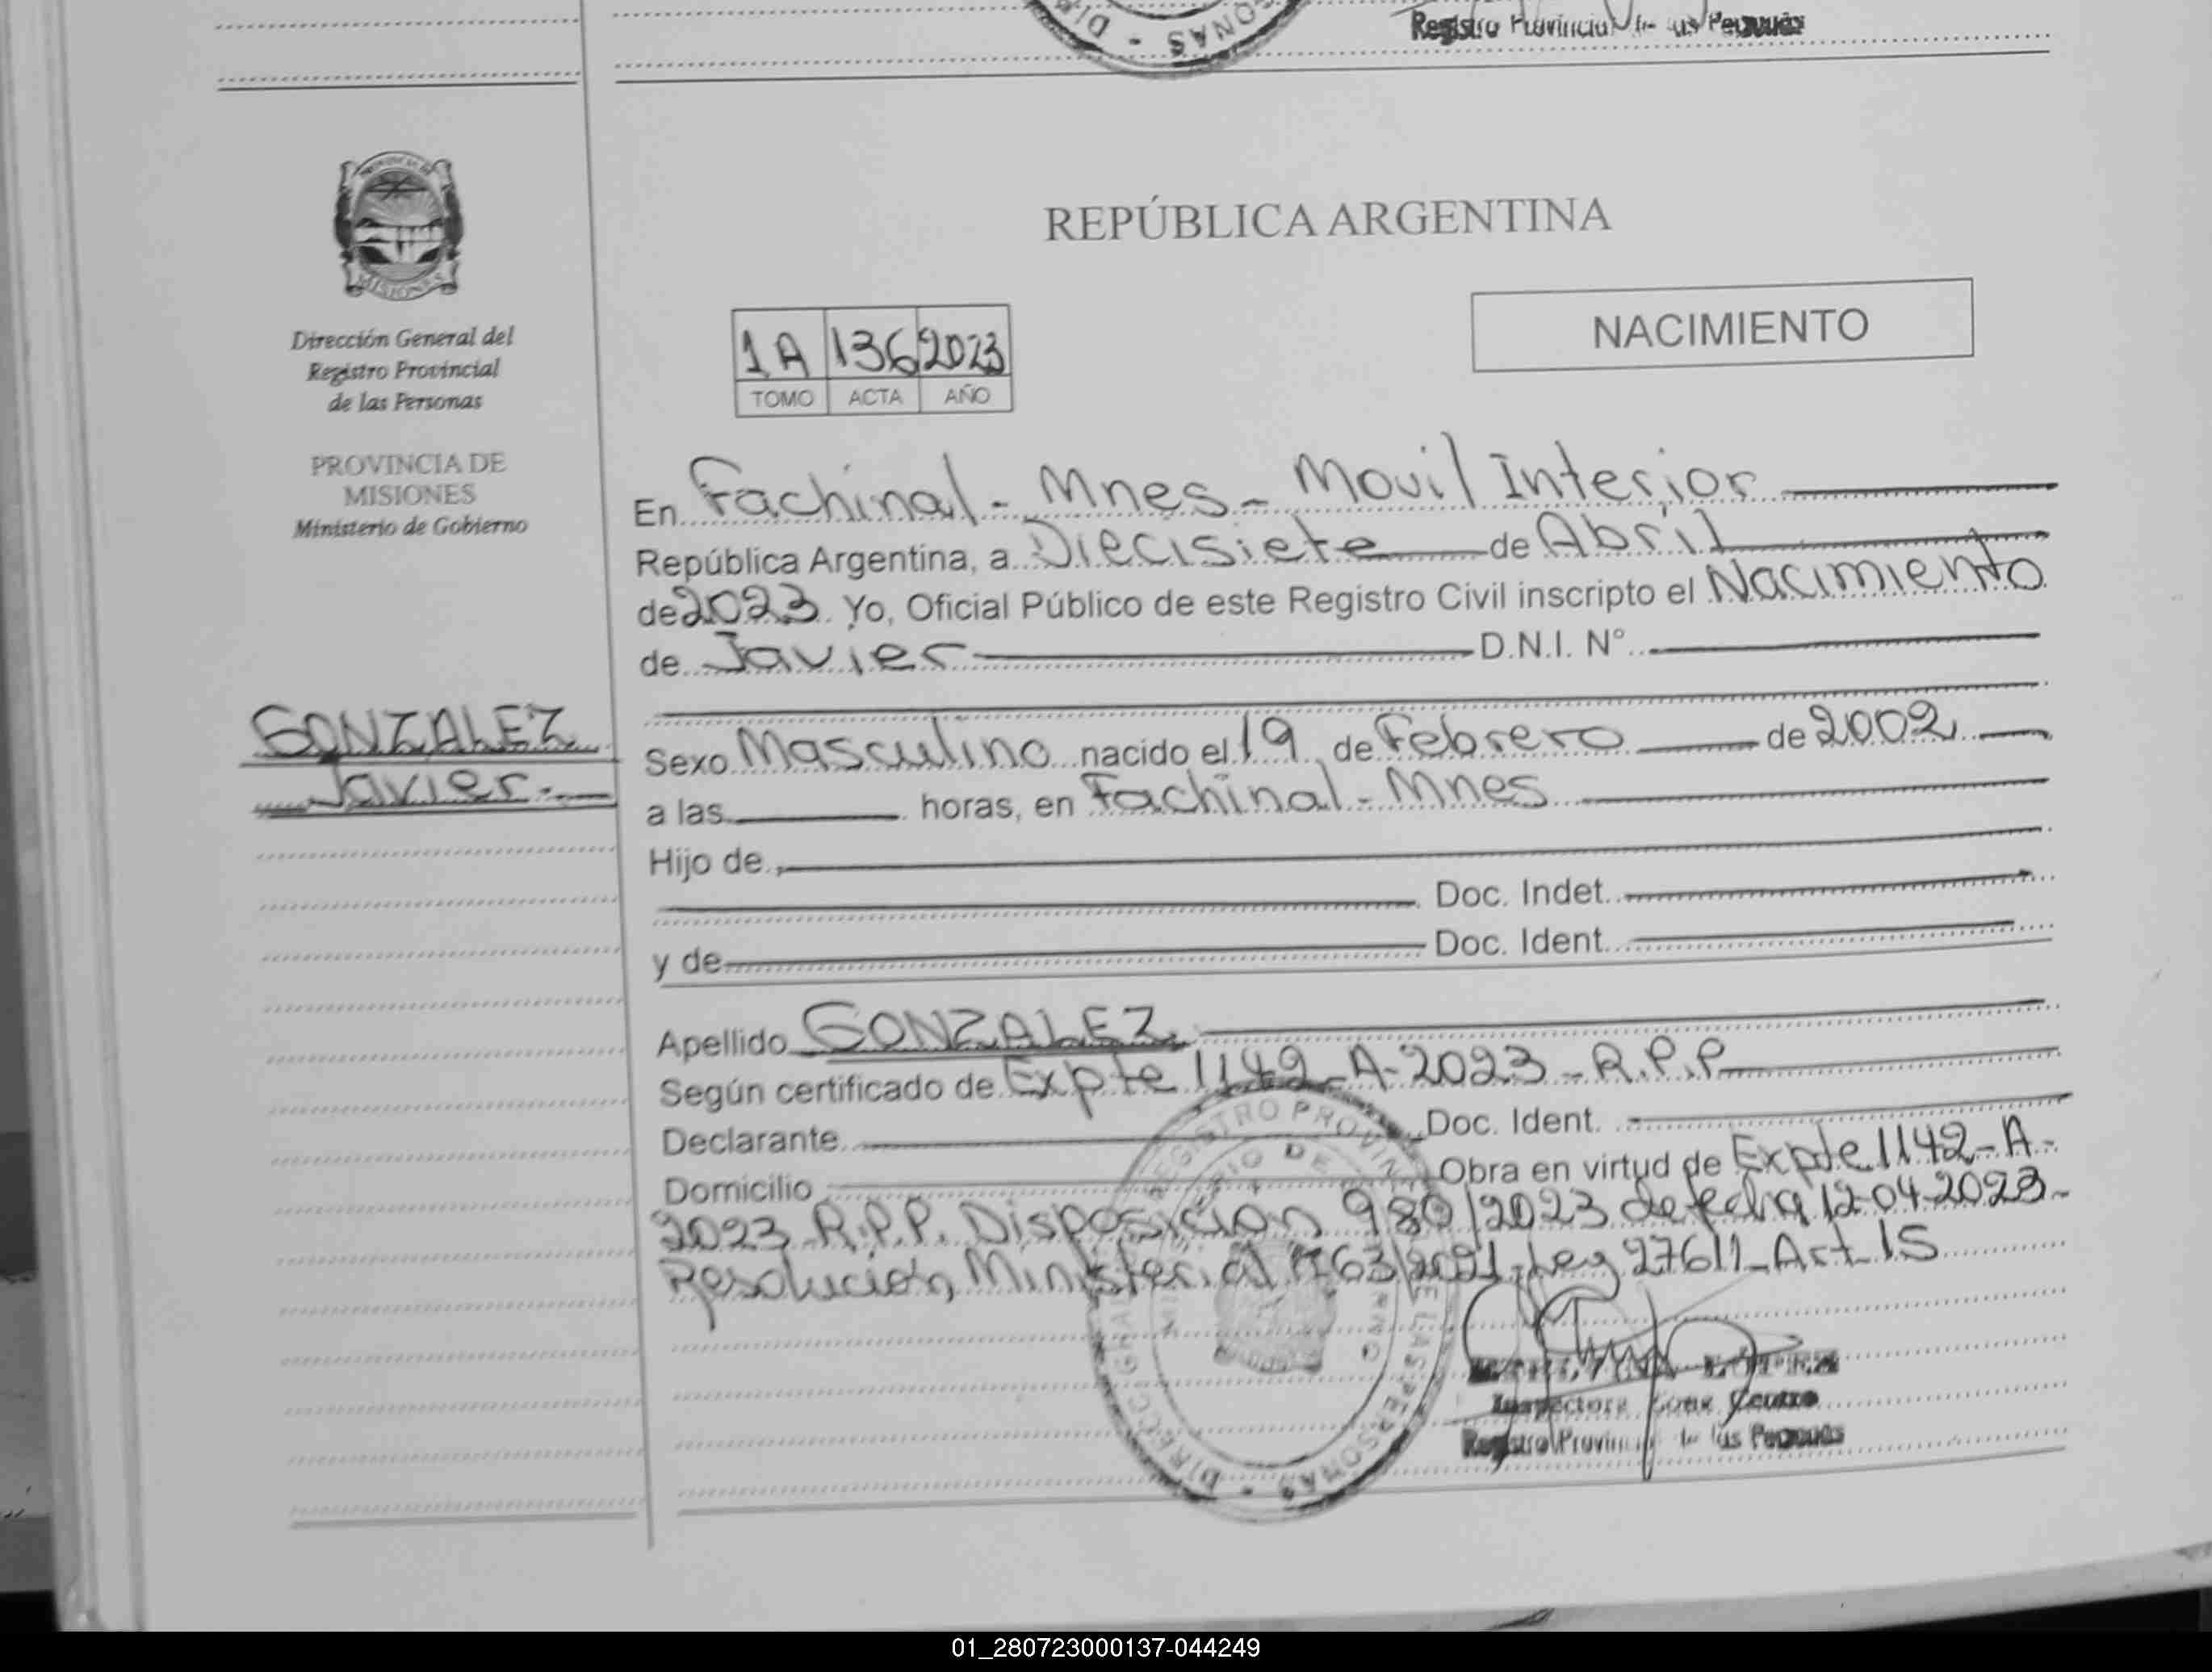 Registro Provincial de las Personas
DIR - SONAS
PROVINCIA DE
MISIONES
Dirección General del
Registro Provincial
de las Personas
PROVINCIA DE
MISIONES
Ministerio de Gobierno
GONZALEZ
Javier.
REPÚBLICA ARGENTINA
NACIMIENTO
1A 136 2023
TOMO ACTA AÑO
En Fachinal - Mnes - Movil Interior
República Argentina, a Diecisiete de Abril
de 2023 Yo, Oficial Público de este Registro Civil inscripto el Nacimiento
de Javier D.N.I. N°
Sexo Masculino nacido el 19 de Febrero de 2002
a las horas, en Fachinal - Mnes
Hijo de
Doc. Indet.
y de Doc. Ident.
Apellido GONZALEZ
Según certificado de Expte 1142-A-2023-R.P.P
Declarante Doc. Ident.
Domicilio Obra en virtud de Expte 1142-A-
2023 R.P.P. Disposición 980/2023 de fecha 12-04-2023-
Resolución Ministerial 1163/2021-Ley 27611-Art 15
DIRECC GRAL REGISTRO PROVIN DE LAS PERSONAS
LOPEZ
Inspectora Zona Centro
Registro Provincial de las Personas
01_280723000137-044249